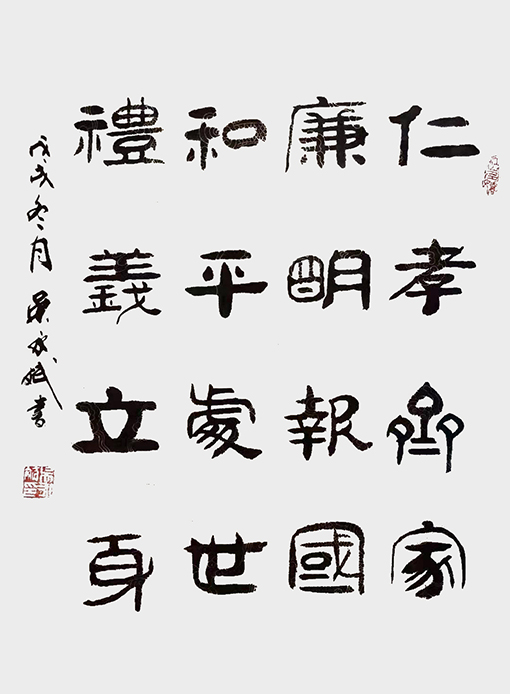 仁孝齊家
廉明報國
和平處世
禮義立身
戊戌冬月 吳成斌書